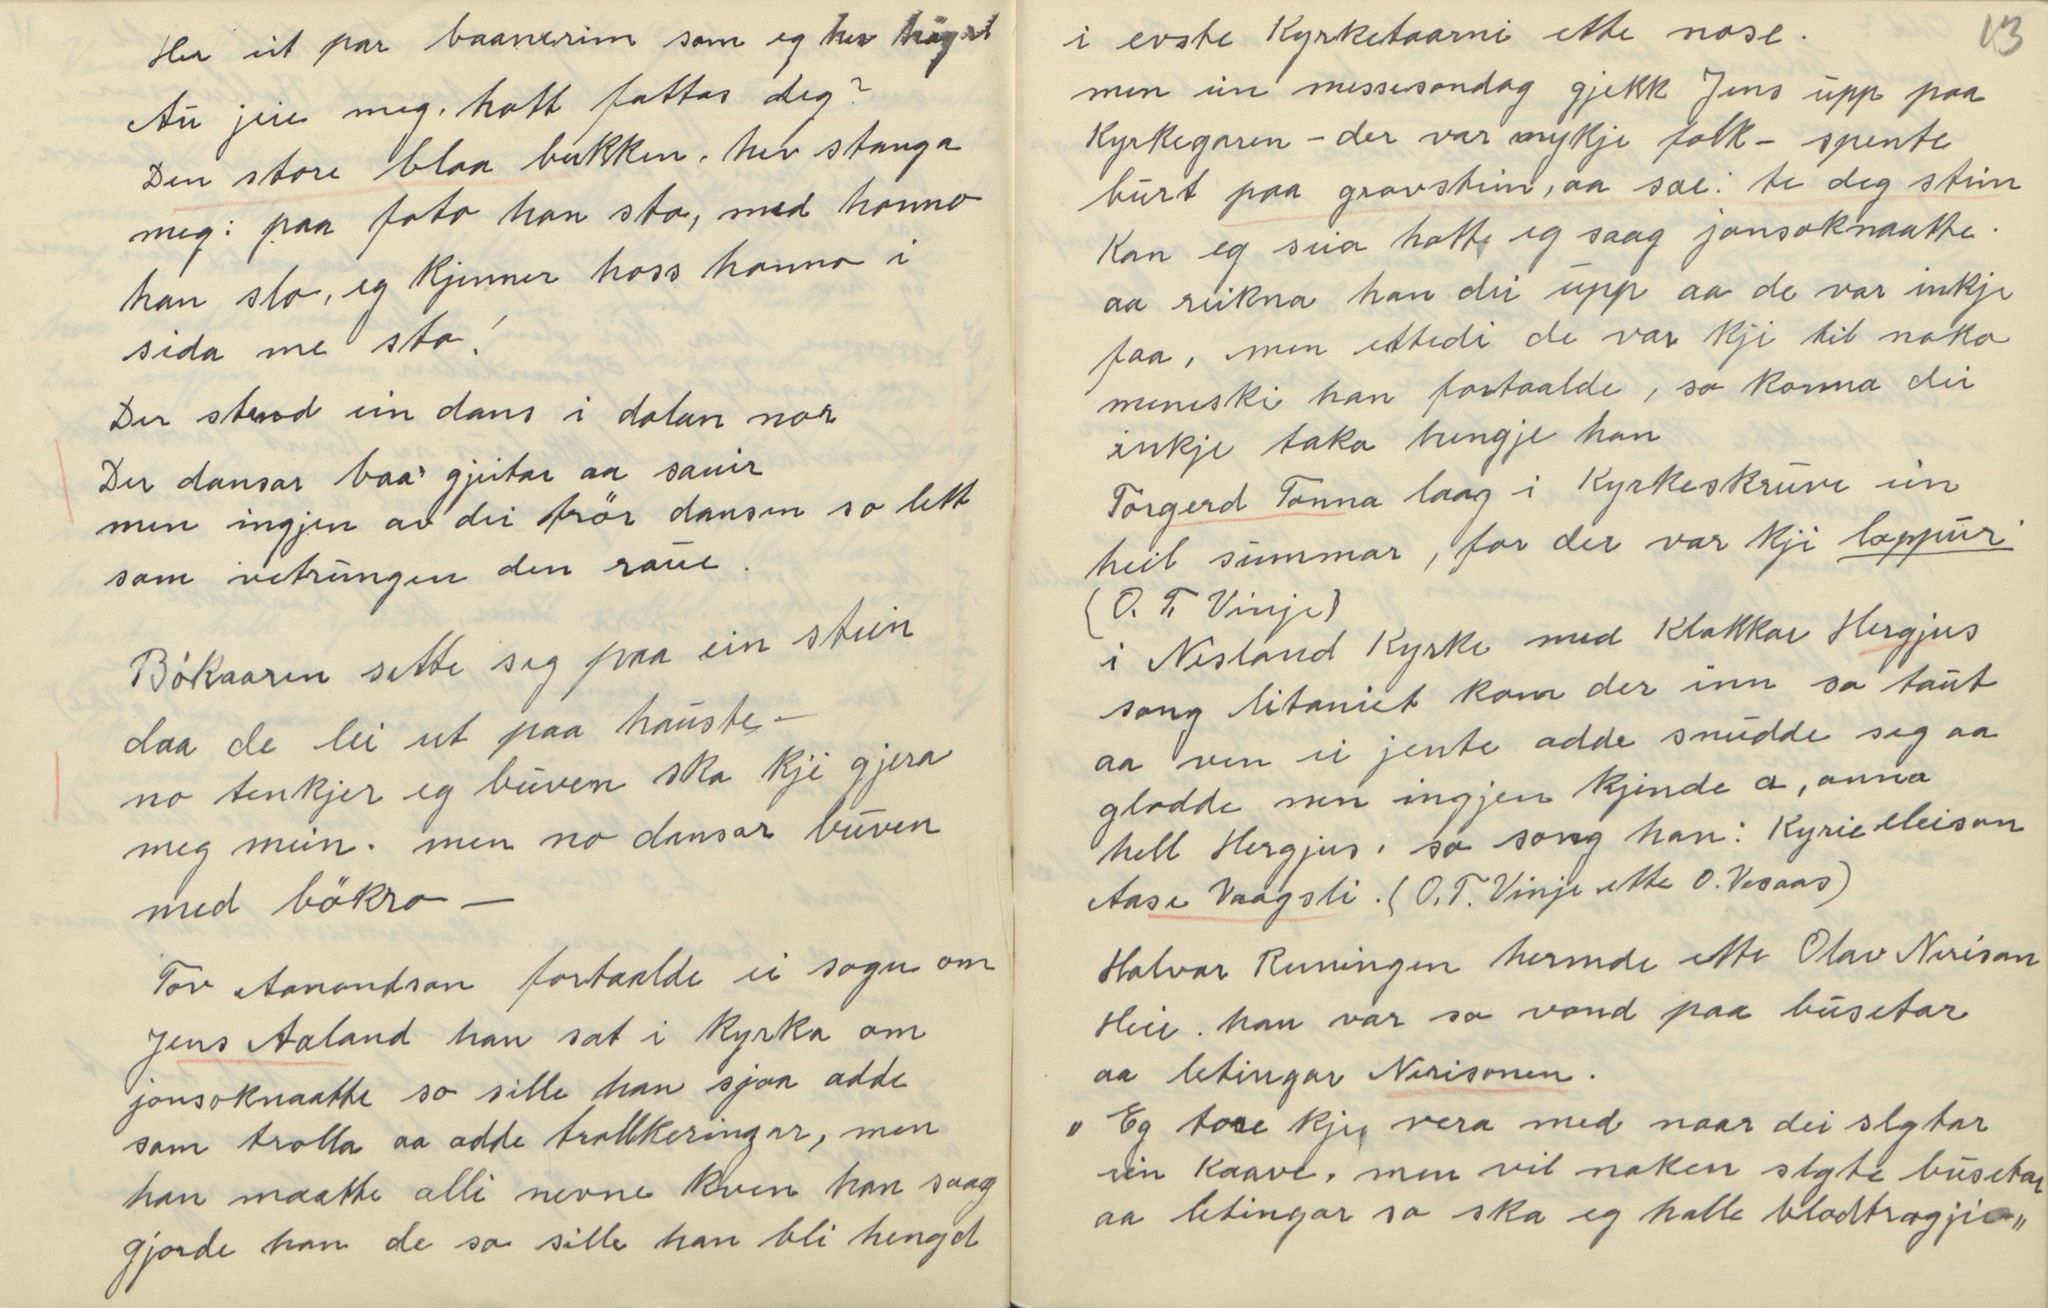 Her eit par baanerim som eg hev högrt
Au jeie meg. hott fattas deg?
Den store blaa bukken. hev stanga
meg: paa foto han sto, med honno
han slo, eg kjenner hoss honno i
sida me sto!
Der stend ein dans i dalan nor
Der dansar baa' gjeitar aa sauir
men ingjen av dei frör dansen so lett
som vetrungen den raue.
Bökaaren sette seg paa ein stein
daa de lei ut paa hauste—
no tenkjer eg buven ska kji gjera
meg mein. men no dansar buven
med bökro —
Tov Aanondson fortaalde ei sogu om
Jens Aaland han sat i kyrka om
jonsoknaatte so sille han sjaa adde
som trolla aa adde trollkeringar, men
han maatte alli nevne kven han saag
gjorde han de so sille han bli hengd
13
i evste Kyrketaarni ette nose.
men ein messesondag gjekk Jens upp paa
Kyrkegaren – der var mykje folk – spente
burt paa gravstein, aa sae: te deg stein
Kan eg seia hott eg saag jonsoknaatte.
aa reikna han dei upp aa de var inkje
faa, men ettedi de var kji til noko
meneski han fortaalde, so konna dei
inkje taka bengje han
Törgerd Tonna laag i Kyrkeskruve ein
heil summar, for der var kji loppur
(O. T. Vinje)
i Nesland Kyrke med Klokkar Hergjus
song litaniet kom der inn so taut
aa ven ei jente adde snudde seg aa
glodde men ingjen kjinde a, anna
hell Hergjus. so song han: Kyrie eleison
Aase Vaagsli. (O. T. Vinje ette O. Vesaas)
Halvor Runingen hermde ette Olav Nerison
Heie. han var so vond paa busetar
aa letingar Nerisonen.
„ Eg tore kji vera med naar dei slgtar
ein Kaave. men vil noken slgte busetar
aa letingar so ska eg halle blodtrogji „